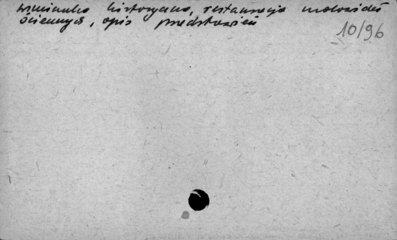 wzmianka historyczna, restauracja malowideł
ściennych, opis przedstawień
10/96